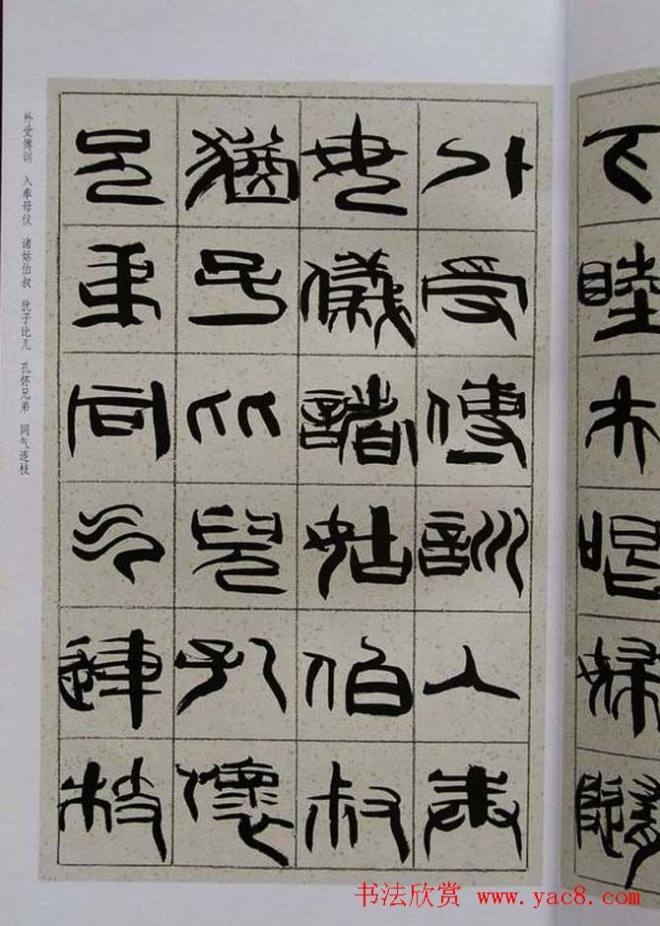 下睦夫唱婦隨
外受傅訓入奉
母儀諸姑伯叔
猶子比兒孔懷
兄弟同气連枝
外受傅训 入奉母仪 诸姑伯叔 犹子比儿 孔怀兄弟 同气连枝
书法欣赏 www.yac8.com